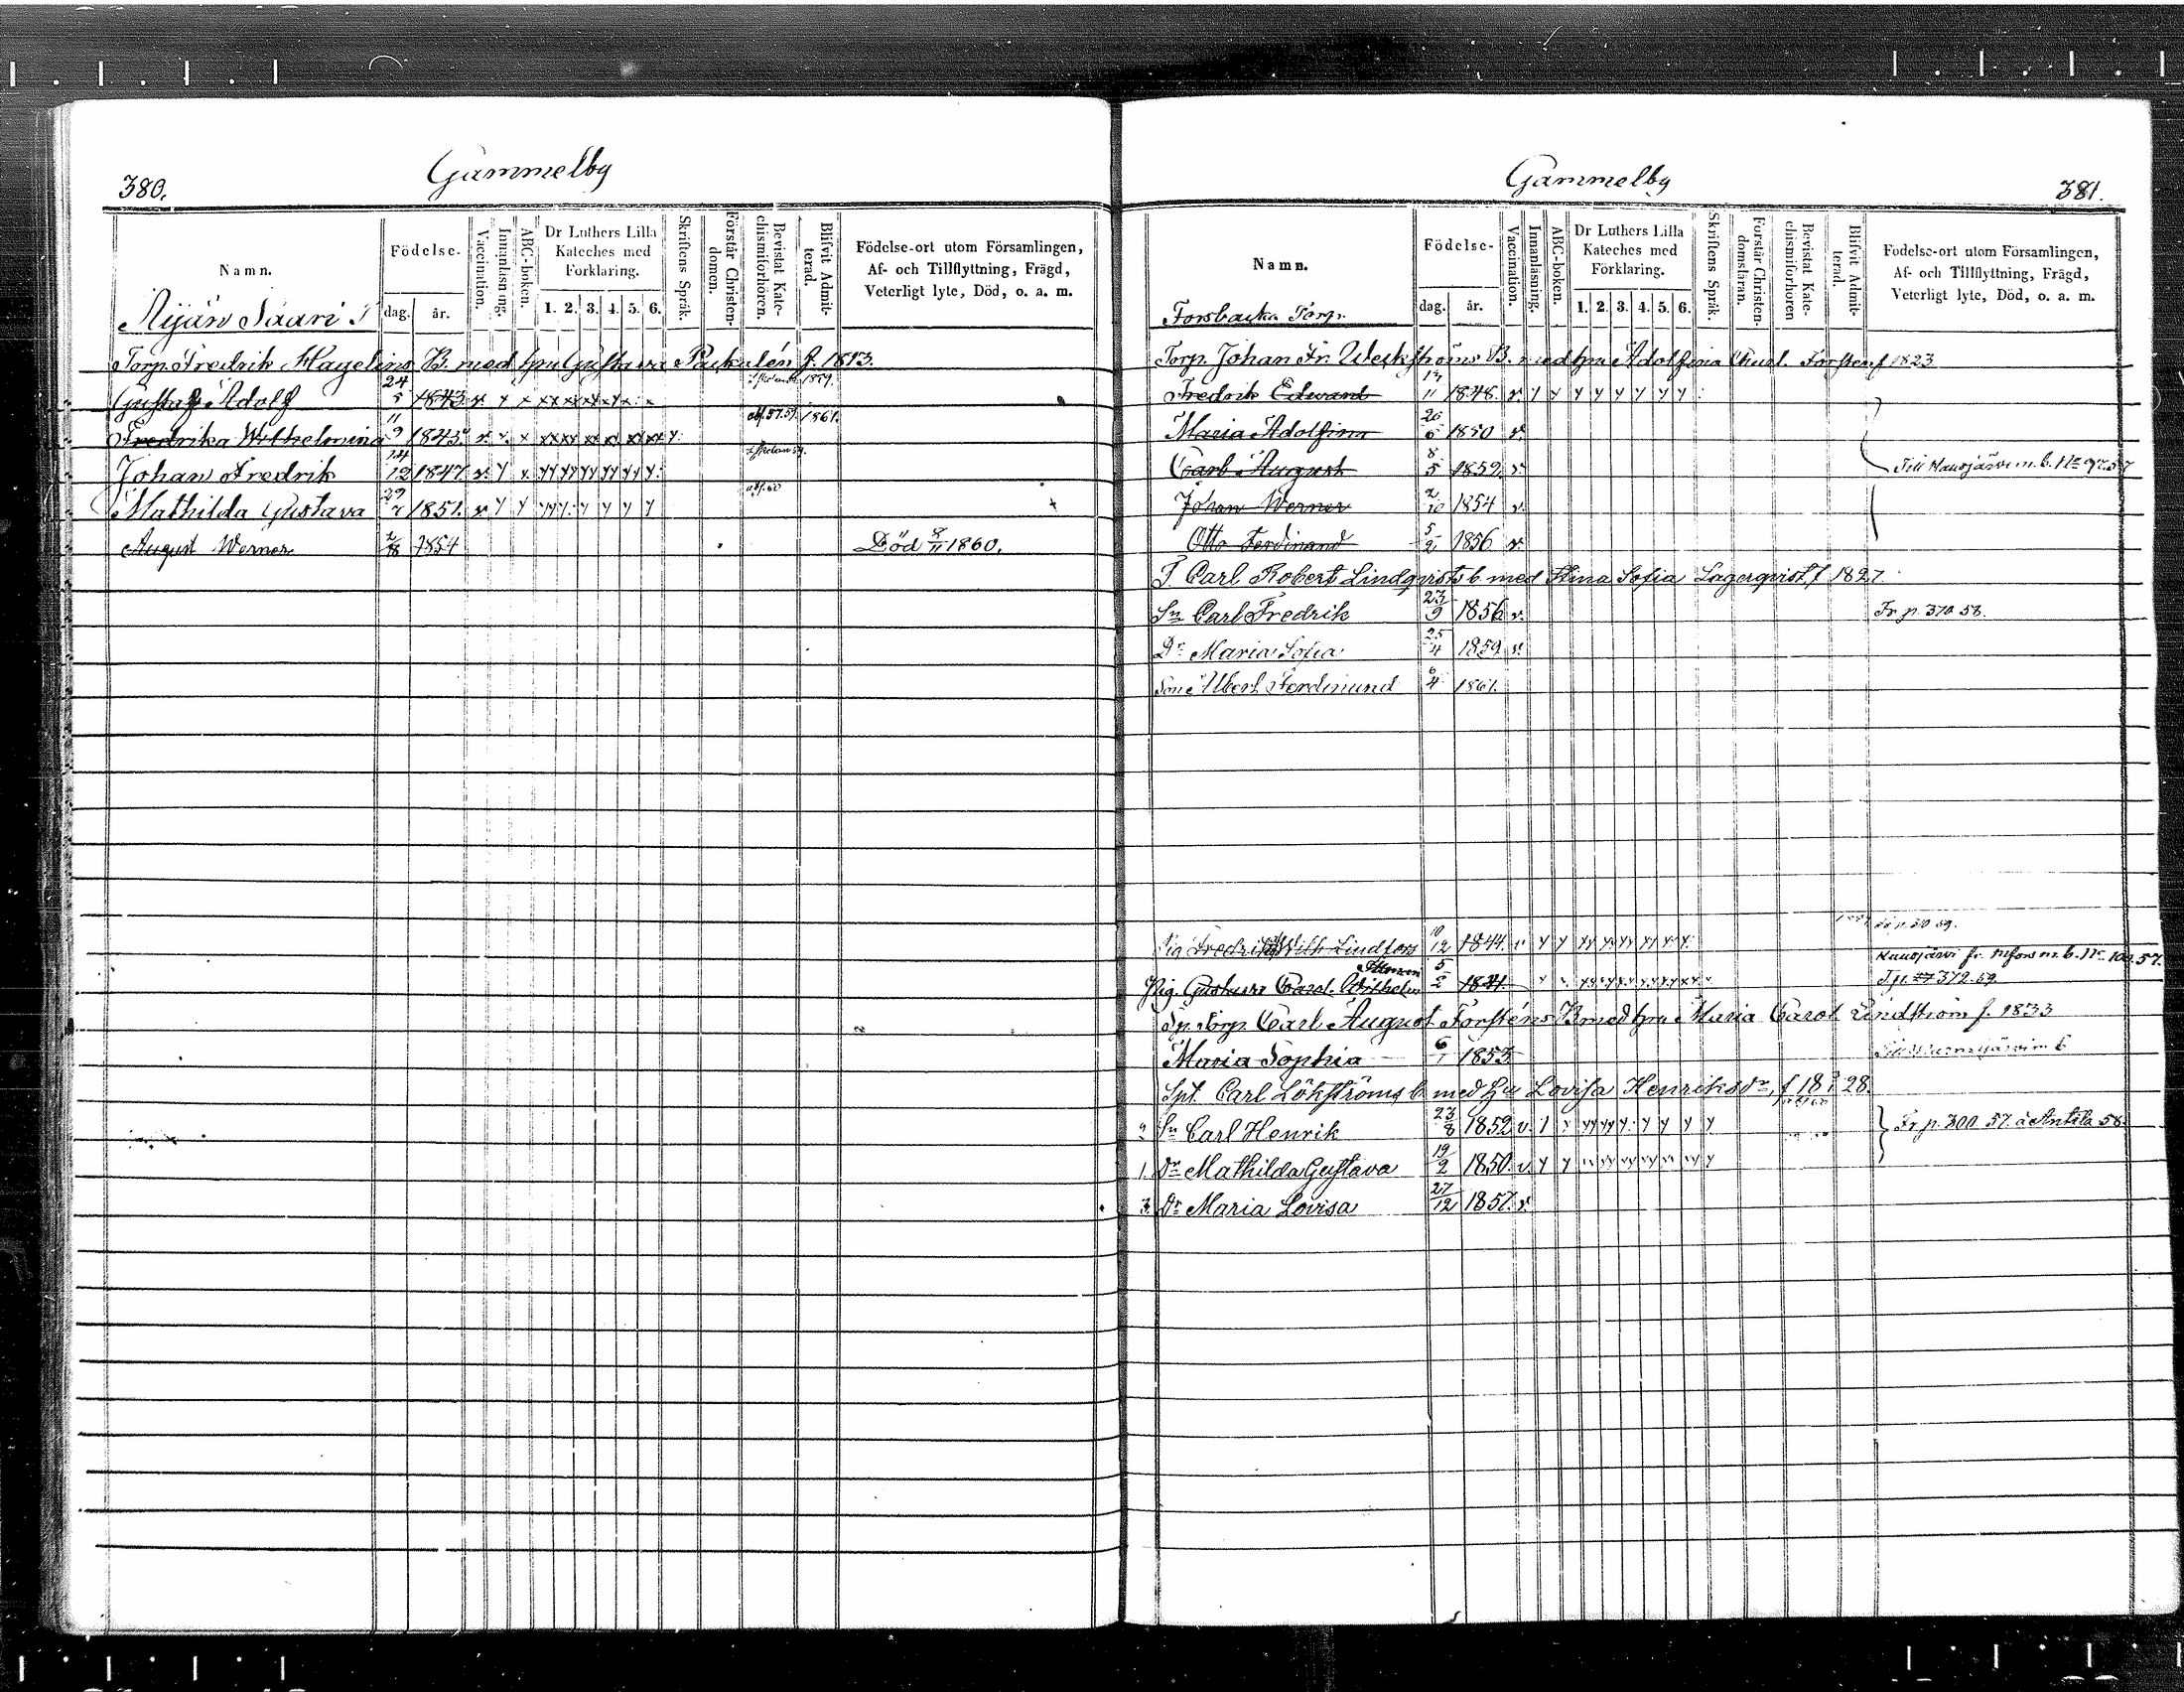 380.
Gammelby
Namn.
Födelse-
dag.
år.
Vaccination.
Innanläsning.
ABC-boken.
Dr Luthers Lilla Kateches med Förklaring.
1. 2. 3. 4. 5. 6.
Skriftens Språk.
Förstår Christen-domen.
Bevistat Kate-chismiförhören.
Blifvit Admit-terad.
Födelse-ort utom Församlingen, Af- och Tillflyttning, Frägd, Veterligt lyte, Död, o. a. m.
Saari T
Torp. Fredrik Hagelins B. med hu Gustava f. 1813.
Gustaf Adolf 24/5 1843 v. x x xx xx xx x x x
Fredrika Wilhelmina 11/9 1843 v. x x xx xx xx xx xx xx y 1861.
Johan Fredrik 14/12 1847 v. y x yy yy yy yy y y
Mathilda Gustava 29/7 1851. v y y yy y y y y y
August Werner 2/8 1854 Död 8/11 1860.
Gammelby
381.
Namn.
Födelse-
dag.
år.
Vaccination.
Innanläsning.
ABC-boken.
Dr Luthers Lilla Kateches med Förklaring.
1. 2. 3. 4. 5. 6.
Skriftens Språk.
Förstår Christen-domsläran.
Bevistat Kate-chismiförhören
Blifvit Admit-terad.
Födelse-ort utom Församlingen, Af- och Tillflyttning, Frägd, Veterligt lyte, Död, o. a. m.
Forsbacka Torp.
Torp. Johan Fr. Weckströms B. med hu Adolfina f 1823
Fredrik Edward 11 1848. v. y y y y y y y y
Maria Adolfina 20/6 1850 v.
Carl August 8/5 1852 v Till Hausjärvi m. b. No 97. 57
Johan Werner 2/10 1854 v.
Otto Ferdinand 5/2 1856 v.
T Carl Robert Lindqvists b med Stina Sofia Lagerqvist f 1827
Sn Carl Fredrik 23/9 1856 v. Fr p. 370 58.
Dr Maria Sofia 25/4 1859 v.
Son Albert Ferdinand 6/4 1861.
Pig Fredrika Wilh Lindfors 10/12 1844. v y y yy yy yy yy y y
Hausjärvi fr. m. b. No 57.
Pig. Gustava Carol. Wilhelm 5/2 1841. T p. 372. 59.
Sp. Torp. Carl August Forsténs B med hu Maria Carol. Lindström f. 1833
Maria Sophia 6/1 1853
Spt. Carl Löhströms b. med hu Lovisa Henriksdr, f 18 28.
2 Sn Carl Henrik 23/8 1852 v. Fr p. 300 57. à Antila 58.
1. Dr Mathilda Gustava 19/2 1850 v. y y
3. Dr Maria Lovisa 27/12 1857. v.